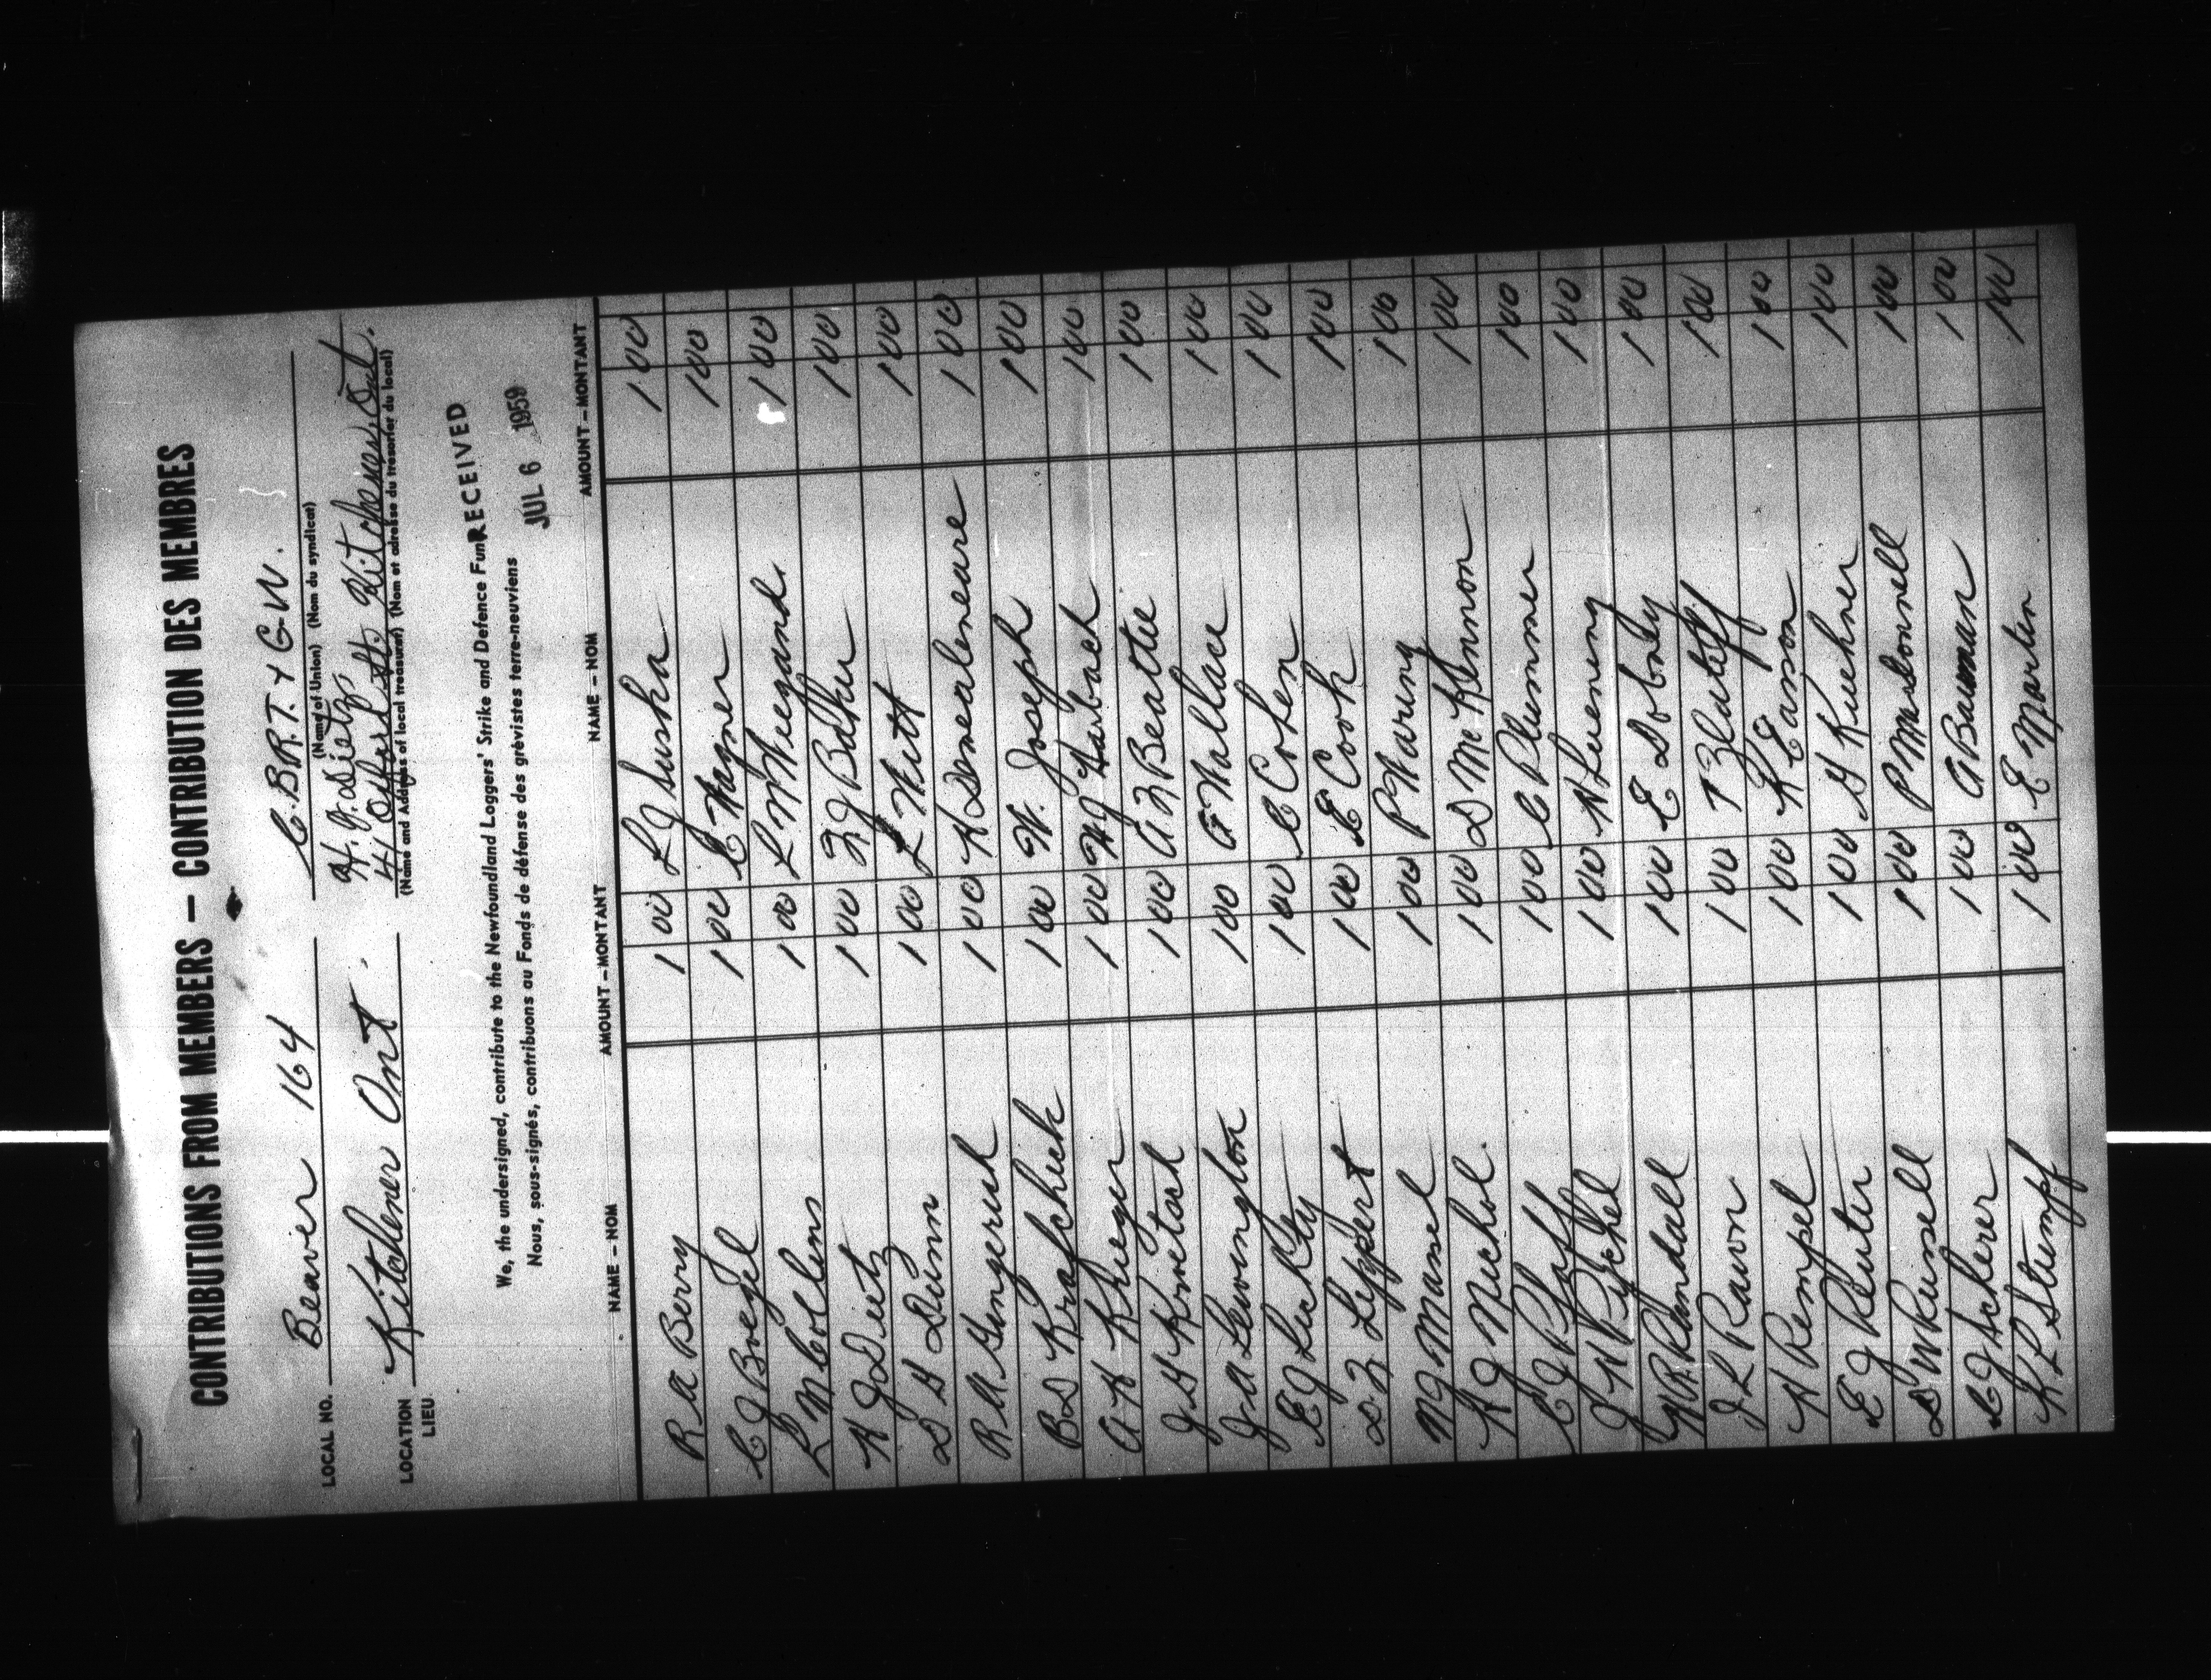 CONTRIBUTIONS FROM MEMBERS — CONTRIBUTION DES MEMBRES
LOCAL NO. Beaver 164 C.B.R.T. & G.W.
(Name of Union) (Nom du syndicat)
LOCATION Kitchener Ont. H. J. Dietz
LIEU St. Kitchener, Ont.
(Name and Address of local treasurer) (Nom et adresse du tresorier du local)
We, the undersigned, contribute to the Newfoundland Loggers' Strike and Defence Fun
Nous, sous-signés, contribuons au Fonds de défense des grévistes terre-neuviens
RECEIVED
JUL 6 1959
NAME – NOM AMOUNT – MONTANT NAME – NOM AMOUNT – MONTANT
R A Berry 1 00 L J Suska 1 00
C J Boegel 1 00 C Wagner 1 00
L M Collins 1 00 L M Weigand 1 00
K J Dietz 1 00 F J Baker 1 00
D H Dunn 1 00 L Witt 1 00
R M Gingerich 1 00 K 1 00
B D Krafchick 1 00 W. Joseph 1 00
A K Krueger 1 00 W J Harbach 1 00
J H 1 00 A F Beattie 1 00
J A Lewington 1 00 A Wallace 1 00
E J Luckty 1 00 C Cohen 1 00
D F Lippert 1 00 E Cook 1 00
N J Mansel 1 00 P Waring 1 00
K J Michol. 1 00 D McKinnon 1 00
C J Pfaff 1 00 C Plummer 1 00
J H Pyschel 1 00 N Luening 1 00
W R Randall 1 00 E Dobney 1 00
J L Rawn 1 00 T 1 00
K Rempel 1 00 K Eason 1 00
E J Reuter 1 00 G Kuehner 1 00
D W Russell 1 00 P Macdonnell 1 00
C J Scherer 1 00 A Bauman 1 00
K L Stumpf 1 00 E Martin 1 00